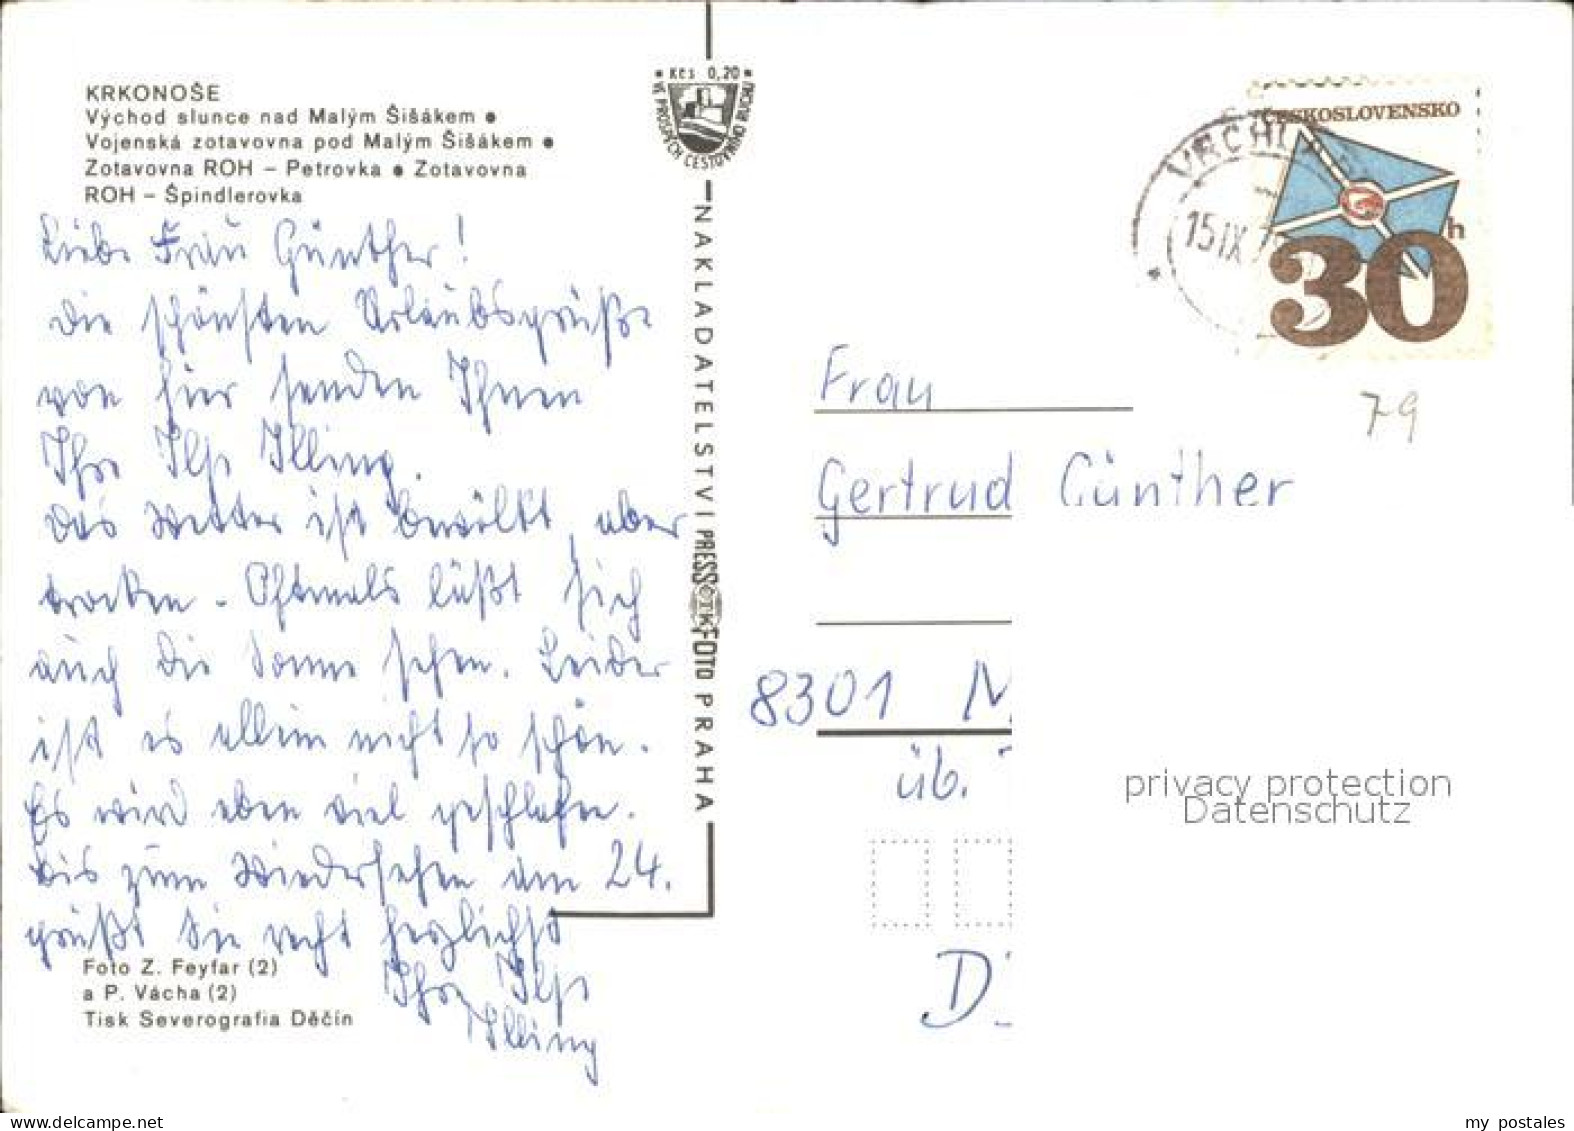 KRKONOŠE
Východ slunce nad Malým Šišákem ●
Vojenská zotavovna pod Malým Šišákem ●
Zotavovna ROH – Petrovka ● Zotavovna
ROH – Špindlerovka
Liebe Frau Günther!
Die schönsten Urlaubsgrüße
von hier senden Ihnen
Ihre Ilse Illing.
Das Wetter ist bewölkt, aber
trocken. Oftmals läßt sich
auch die Sonne sehen. Leider
ist es allein nicht so schön.
Es wird eben viel geschlafen.
Bis zum Wiedersehen am 24.
grüßt Sie recht herzlichst
Ihre Ilse
Illing
Foto Z. Feyfar (2)
a P. Vácha (2)
Tisk Severografia Děčín
Kčs 0,20
VE PROSPĚCH CESTOVNÍHO RUCHU
NAKLADATELSTVÍ PRESSFOTO PRAHA
ČESKOSLOVENSKO
30h
VRCHL
15 IX
79
Frau
Gertrud Günther
8301 M
üb.
D
privacy protection
Datenschutz
www.delcampe.net
my postales